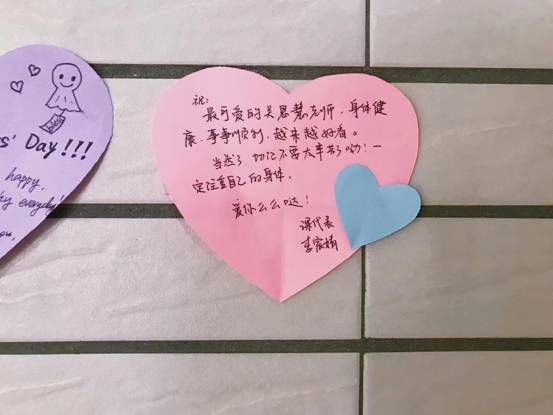 s' Day!!!
happy,
everyday
ou,
祝:
最可爱的吴恩慧老师,身体健
康、事事顺利,越来越好看。
当然了,切记不要太辛苦了呦!一
定注意自己的身体。
爱你么么哒!
课代表
李宸婧